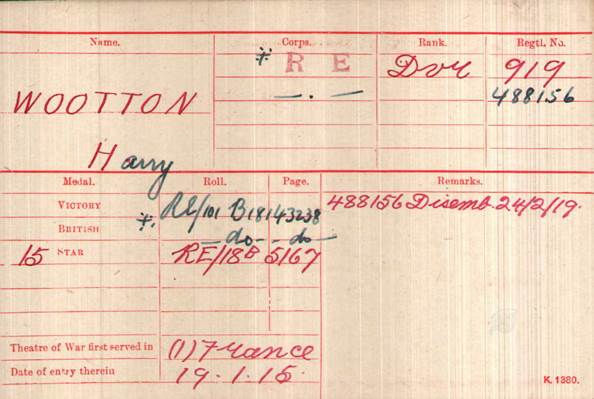 Name. Corps. Rank. Regtl. No.
* R E Dvr 919
WOOTTON — . — 488156
Harry
Medal. Roll. Page. Remarks.
VICTORY * RE/101 B181 43238 488156 Disemb. 24/2/19.
BRITISH —do— —do—
15 STAR RE/18B 5167
Theatre of War first served in (1) France
Date of entry therein 19.1.15.
K. 1380.